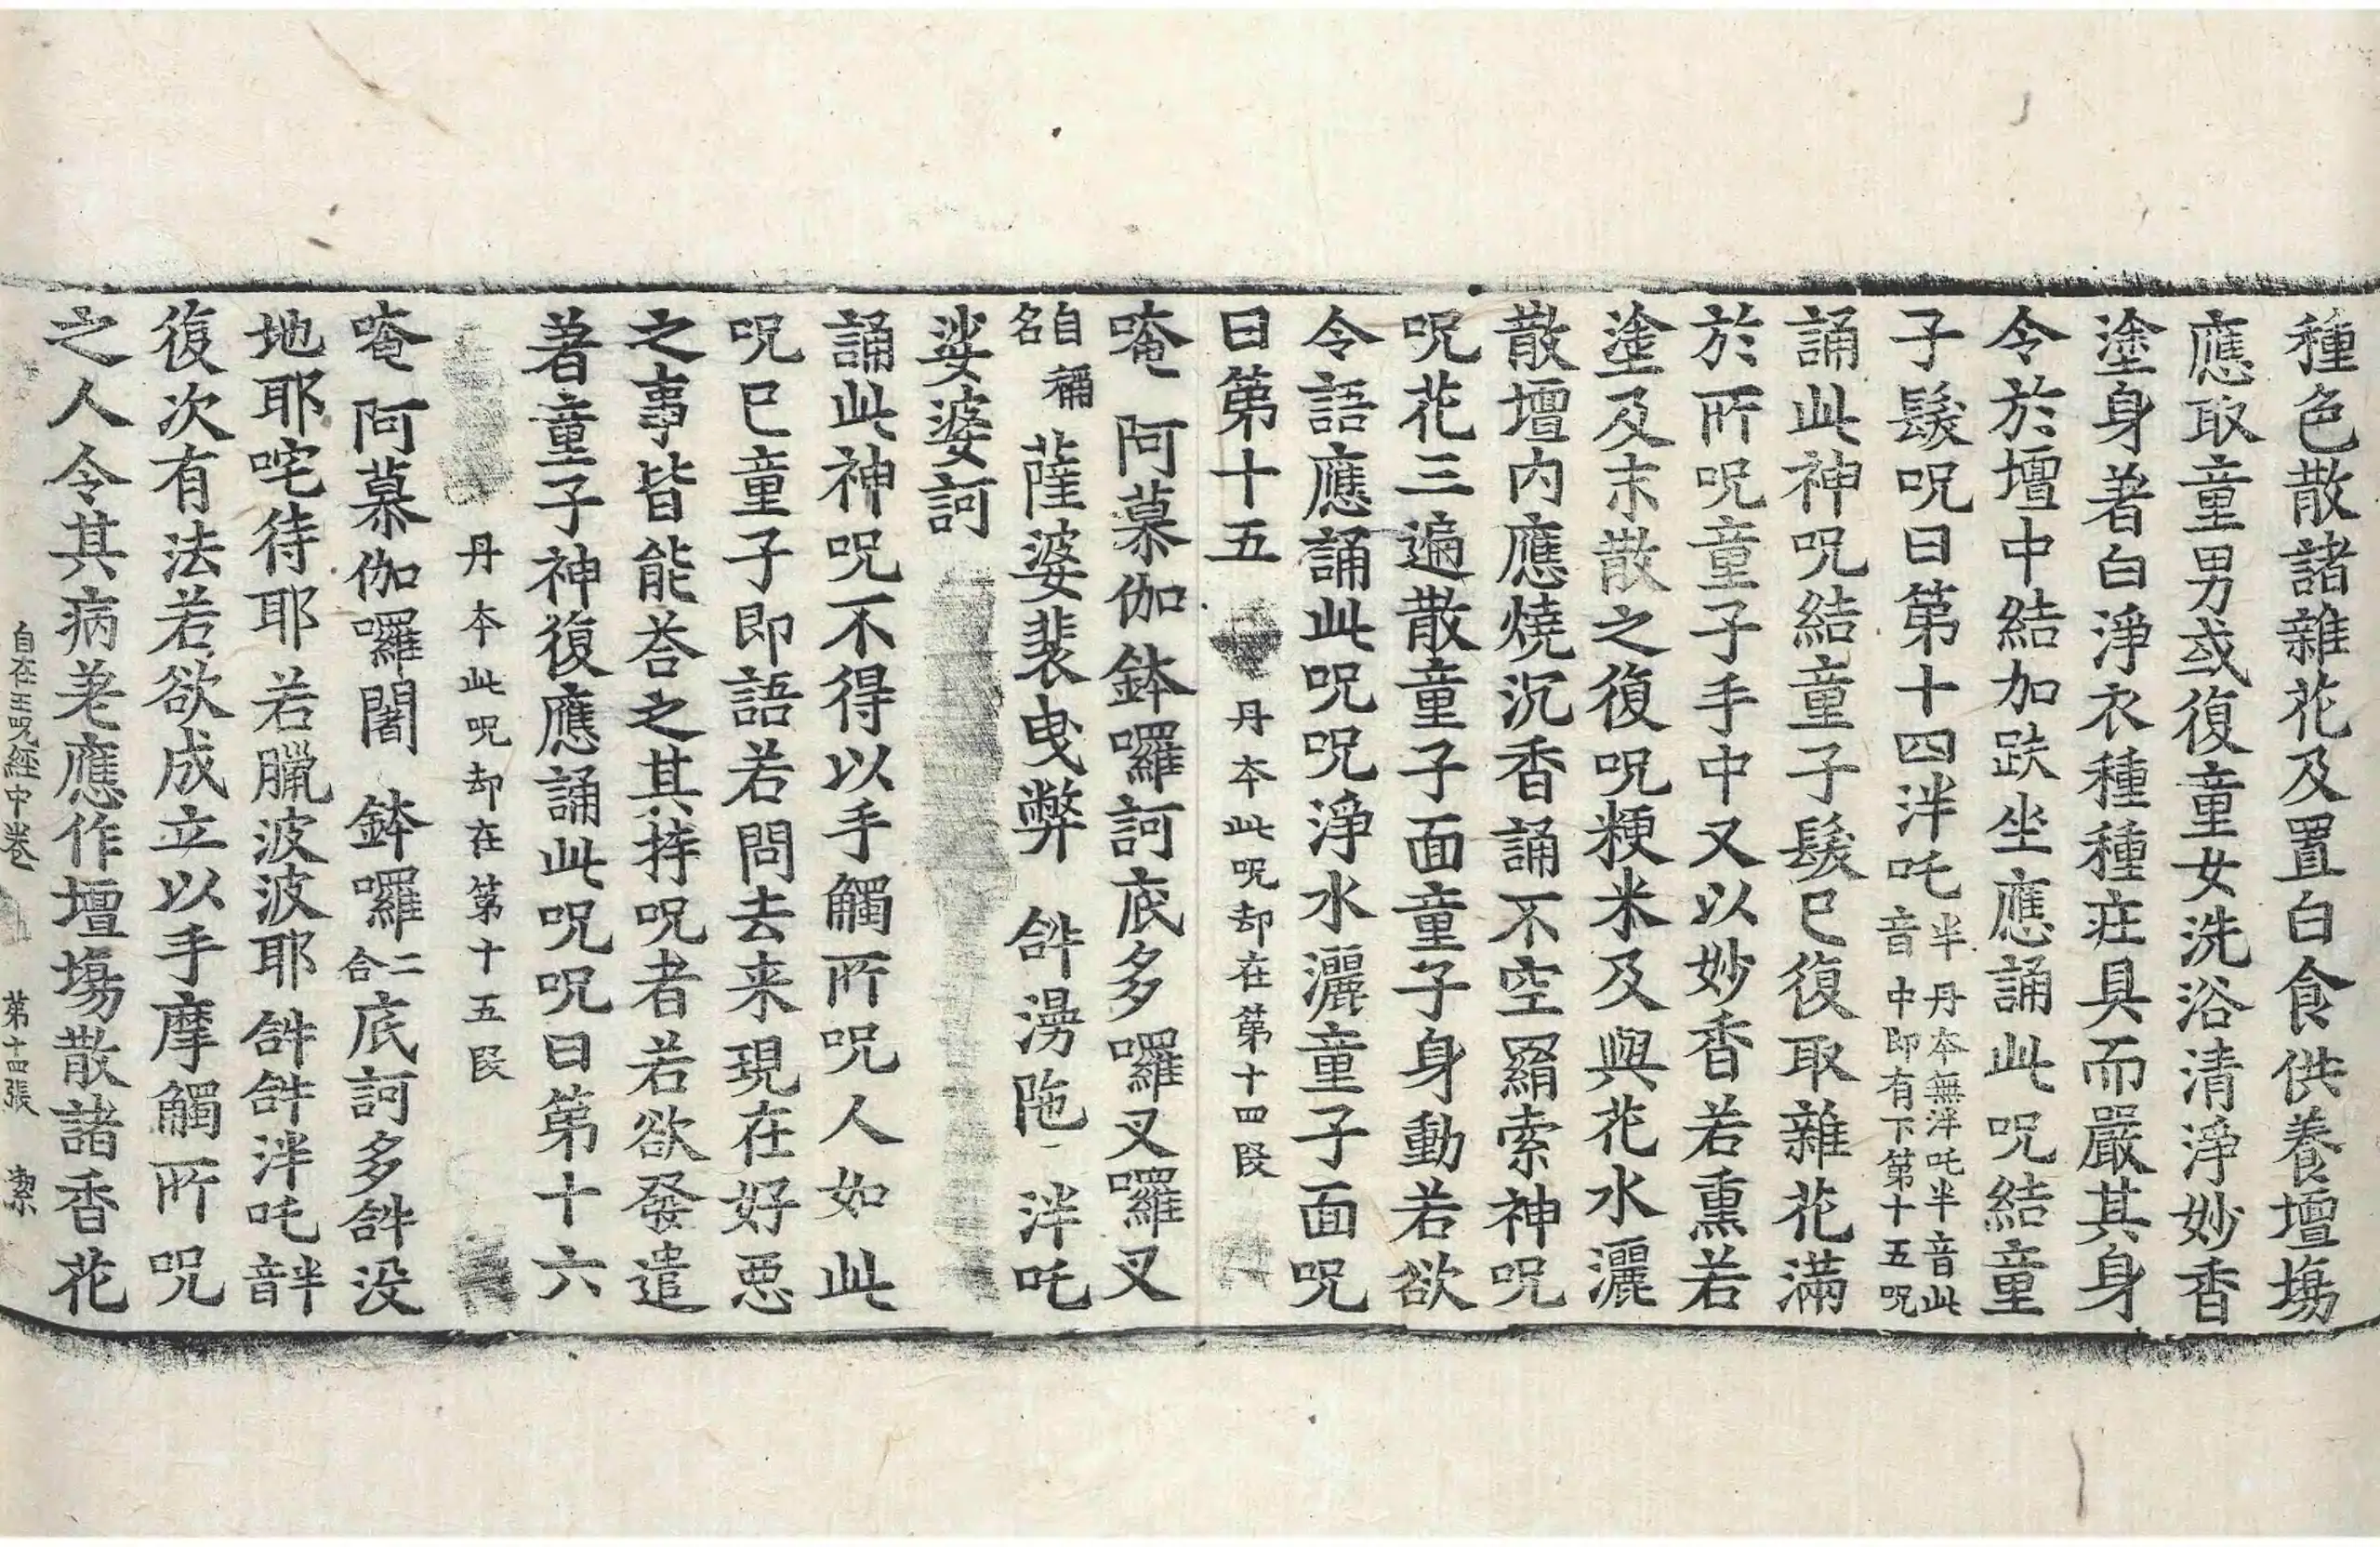 種色散諸雜花及置白食供養壇場
應取童男或復童女洗浴清淨妙香
塗身著白淨衣種種莊具而嚴其身
令於壇中結加趺坐應誦此呪結童
子髮呪曰第十四泮吒半音丹本無泮吒半音此中即有下第十五呪
誦此神呪結童子髮已復取雜花滿
於所呪童子手中又以妙香若熏若
塗及末散之復呪粳米及與花水灑
散壇內應燒沉香誦不空羂索神呪
呪花三遍散童子面童子身動若欲
令語應誦此呪呪淨水灑童子面呪
曰第十五 丹本此呪却在第十四段
唵 阿慕伽鉢囉訶底多囉叉囉叉
自稱名 薩婆裴曳弊 𤙖溻陁 泮吒
娑婆訶
誦此神呪不得以手觸所呪人如此
呪已童子即語若問去来現在好惡
之事皆能荅之其持呪者若欲發遣
著童子神復應誦此呪呪曰第十六
丹本此呪却在第十五段
唵 阿慕伽囉闍 鉢囉二合底訶多𤙖没
地耶咤待耶 若臘波波耶 𤙖𤙖泮吒半音
復次有法若欲成立以手摩觸所呪
之人令其病差應作壇場散諸香花
自在王呪經中卷 第十四張